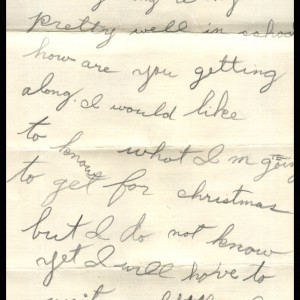 pretty well in school
how are you getting
along. I would like
to know what I'm going
to get for christmas
but I do not know
yet I will have to